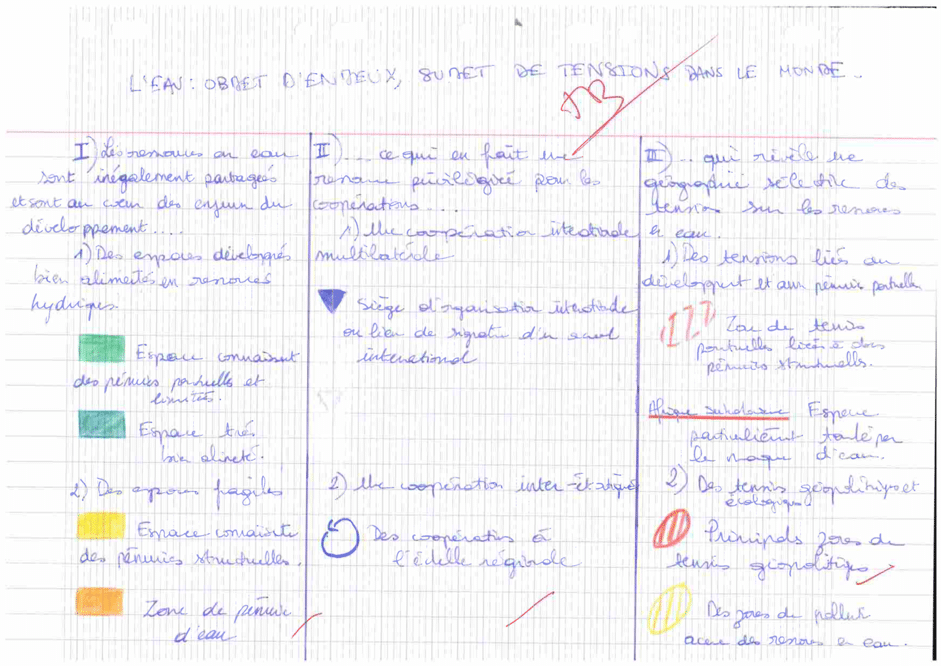 L'EAU : OBJET D'ENJEUX, SUJET DE TENSIONS DANS LE MONDE.
TB
I) Les ressources en eau
sont inégalement partagées
et sont au cœur des enjeux du
développement....
1) Des espaces développés
bien alimentés en ressources
hydriques
Espace connaissant
des pénuries partielles et
limitées.
Espace très
bien alimenté.
2) Des espaces fragiles
Espace connaissant
des pénuries structurelles.
Zone de pénurie
d'eau
II) ... ce qui en fait une
ressource privilégiée pour les
coopérations....
1) Une coopération interétatique
multilatérale
Siège d'organisation interétatique
ou lieu de signature d'un accord
international
2) Une coopération inter-étatique
Des coopérations à
l'échelle régionale
III) .. qui révèle une
géographie sélective des
tensions sur les ressources
en eau.
1) Des tensions liés au
développement et aux pénuries partielles
Zone de tensions
ponctuelles liées à des
pénuries structurelles.
Afrique subsaharienne Espace
particulièrement touché par
le manque d'eau.
2) Des tensions géopolitiques et
écologiques
Principales zones de
tensions géopolitiques
Des zones de pollution
accrue des ressources en eau.